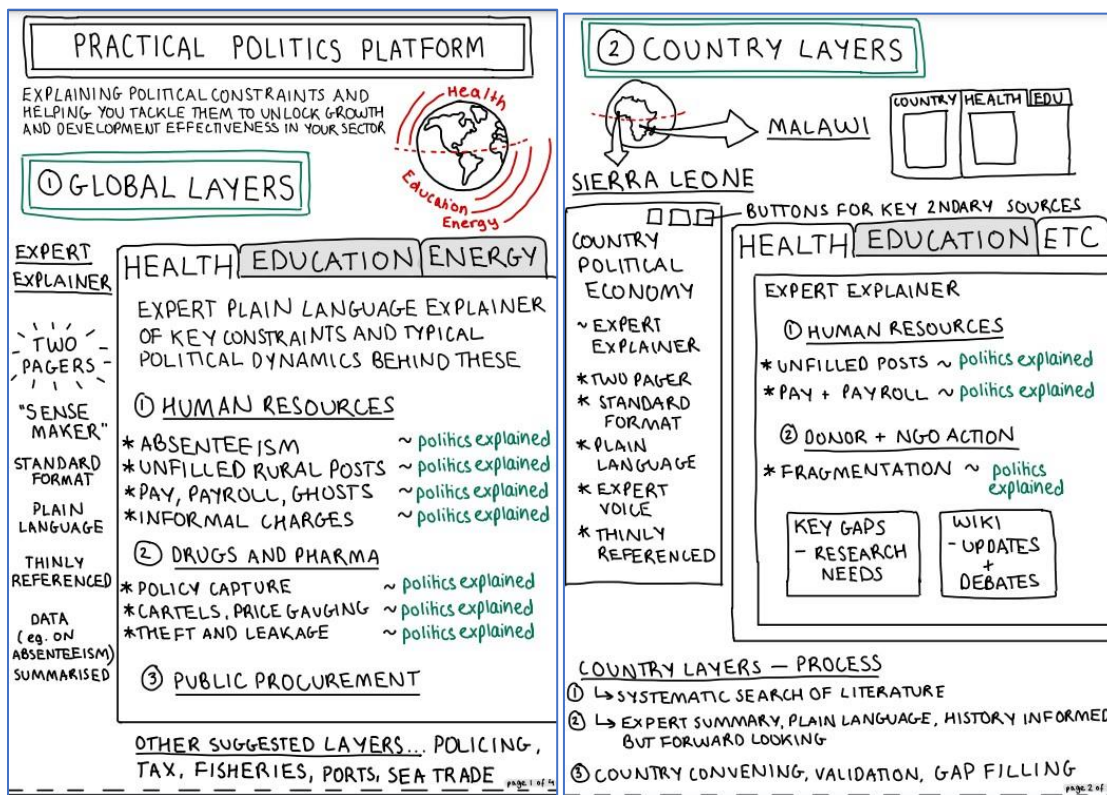 PRACTICAL POLITICS PLATFORM
EXPLAINING POLITICAL CONSTRAINTS AND
HELPING YOU TACKLE THEM TO UNLOCK GROWTH
AND DEVELOPMENT EFFECTIVENESS IN YOUR SECTOR
Health
Education
Energy
① GLOBAL LAYERS
EXPERT
EXPLAINER
TWO
PAGERS
"SENSE
MAKER"
STANDARD
FORMAT
PLAIN
LANGUAGE
THINLY
REFERENCED
DATA
(eg. ON
ABSENTEEISM)
SUMMARISED
HEALTH EDUCATION ENERGY
EXPERT PLAIN LANGUAGE EXPLAINER
OF KEY CONSTRAINTS AND TYPICAL
POLITICAL DYNAMICS BEHIND THESE
① HUMAN RESOURCES
* ABSENTEEISM ~ politics explained
* UNFILLED RURAL POSTS ~ politics explained
* PAY, PAYROLL, GHOSTS ~ politics explained
* INFORMAL CHARGES ~ politics explained
② DRUGS AND PHARMA
* POLICY CAPTURE ~ politics explained
* CARTELS, PRICE GAUGING ~ politics explained
* THEFT AND LEAKAGE ~ politics explained
③ PUBLIC PROCUREMENT
OTHER SUGGESTED LAYERS... POLICING,
TAX, FISHERIES, PORTS, SEA TRADE
page 1 of 4
② COUNTRY LAYERS
MALAWI
COUNTRY HEALTH EDU
SIERRA LEONE
BUTTONS FOR KEY 2NDARY SOURCES
COUNTRY
POLITICAL
ECONOMY
~ EXPERT
EXPLAINER
* TWO PAGER
* STANDARD
FORMAT
* PLAIN
LANGUAGE
* EXPERT
VOICE
* THINLY
REFERENCED
HEALTH EDUCATION ETC
EXPERT EXPLAINER
① HUMAN RESOURCES
* UNFILLED POSTS ~ politics explained
* PAY + PAYROLL ~ politics explained
② DONOR + NGO ACTION
* FRAGMENTATION ~ politics
explained
KEY GAPS
- RESEARCH
NEEDS
WIKI
- UPDATES
+
DEBATES
COUNTRY LAYERS — PROCESS
① ↳ SYSTEMATIC SEARCH OF LITERATURE
② ↳ EXPERT SUMMARY, PLAIN LANGUAGE, HISTORY INFORMED
BUT FORWARD LOOKING
③ COUNTRY CONVENING, VALIDATION, GAP FILLING
page 2 of